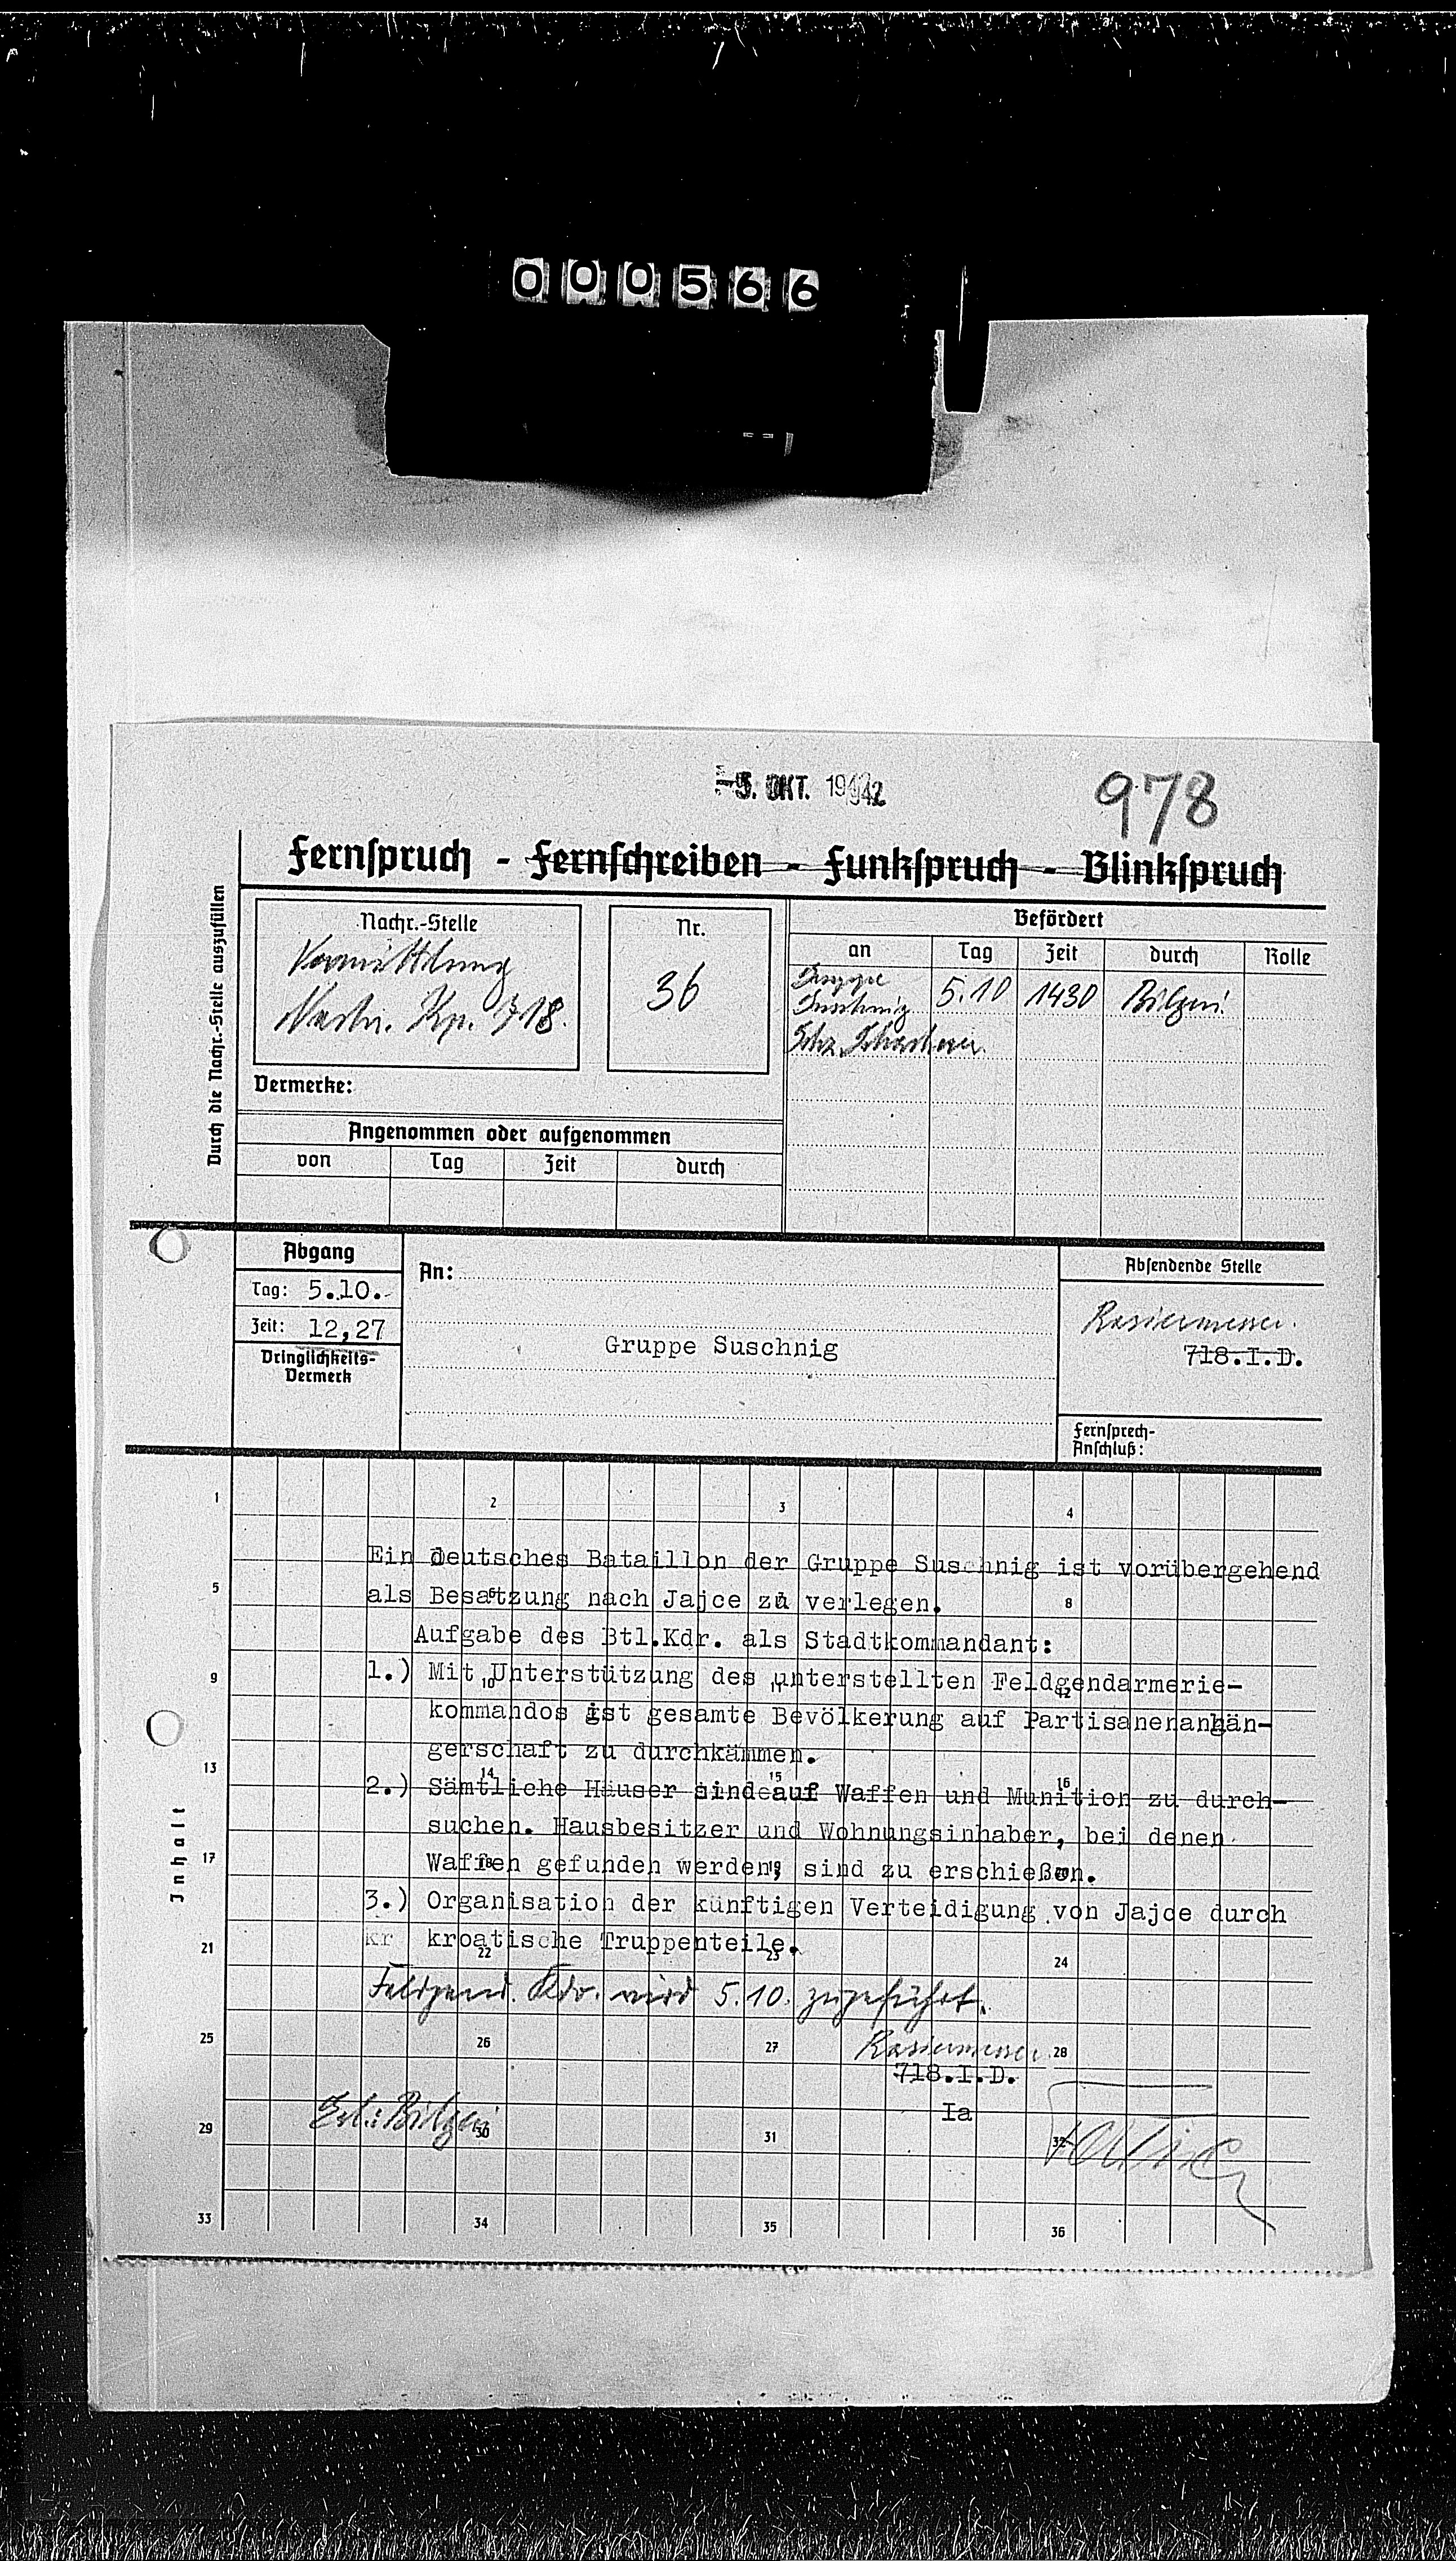 000566
-5. OKT. 1942
978
Fernspruch - Fernschreiben - Funkspruch - Blinkspruch
Durch die Nachr.-Stelle auszufüllen
Nachr.-Stelle
Vermittlung
Nachr. Kp. 718.
Nr.
36
Befördert
an Tag Zeit durch Rolle
Gruppe
Suschnig 5.10 1430
Vermerke:
Angenommen oder aufgenommen
von Tag Zeit durch
Abgang
Tag: 5.10.
Zeit: 12,27
Dringlichkeits-
Vermerk
An:
Gruppe Suschnig
Absendende Stelle
Rasiermesser.
718.I.D.
Fernsprech-
Anschluß:
Inhalt
1 2 3 4
Ein deutsches Bataillon der Gruppe Suschnig ist vorübergehend
5 6 7 8
als Besatzung nach Jajce zu verlegen.
Aufgabe des Btl.Kdr. als Stadtkommandant:
9 10 11 12
1.) Mit Unterstützung des unterstellten Feldgendarmerie-
kommandos ist gesamte Bevölkerung auf Partisanenanhän-
gerschaft zu durchkämmen.
13 14 15 16
2.) Sämtliche Häuser sind auf Waffen und Munition zu durch-
suchen. Hausbesitzer und Wohnungsinhaber, bei denen
17 18 19
Waffen gefunden werden, sind zu erschießen.
3.) Organisation der künftigen Verteidigung von Jajce durch
kr kroatische Truppenteile.
21 22 23 24
Feldgend. Kdo. wird 5.10. zugeführt.
25 26 27 28
Rasiermesser
718.I.D.
Ia
29 30 31 32
33 34 35 36